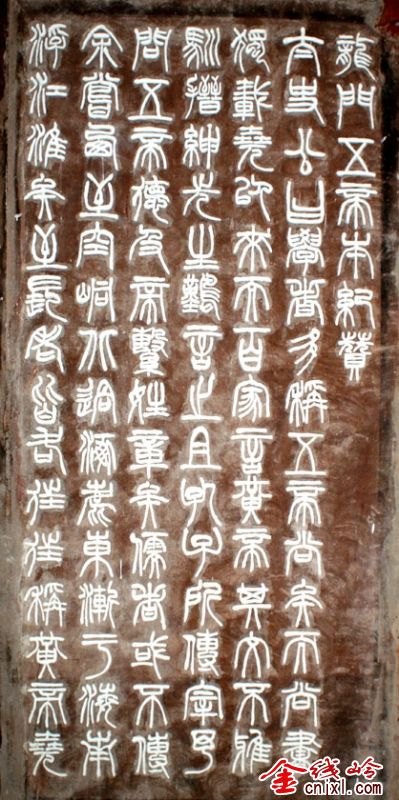 龍門五帝本紀贊
太史公曰學者多稱五帝尚矣而尚書
獨載堯以來而百家言黃帝其文不雅
馴搢紳先生難言之且孔子所傳宰予
問五帝德及帝繫姓章矣儒者或不傳
余嘗西至空峒北過涿鹿東漸于海南
浮江淮矣至長老皆各往往稱黃帝堯
金线岭
cnjxl.com